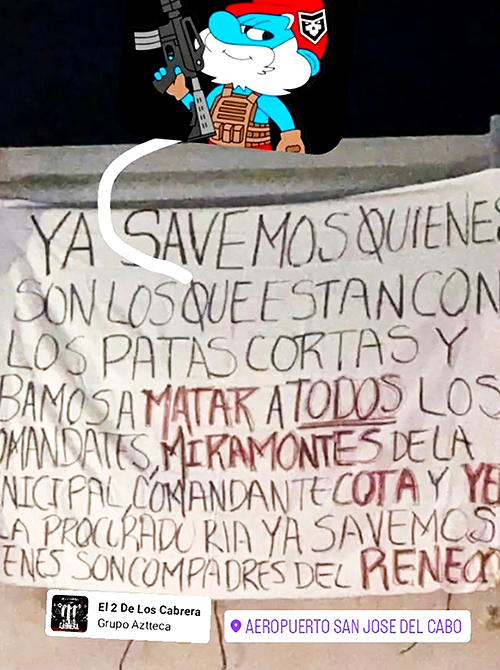 YA SAVEMOS QUIENES
SON LOS QUE ESTAN CON
LOS PATAS CORTAS Y
BAMOS A MATAR A TODOS LOS
OMANDATES, MIRAMONTES DE LA
NICIPAL, COMANDANTE COTA Y YE
LA PROCURADURIA YA SAVEMOS
ENES SON COMPADRES DEL RENECO
El 2 De Los Cabrera
Grupo Aztteca
AEROPUERTO SAN JOSE DEL CABO